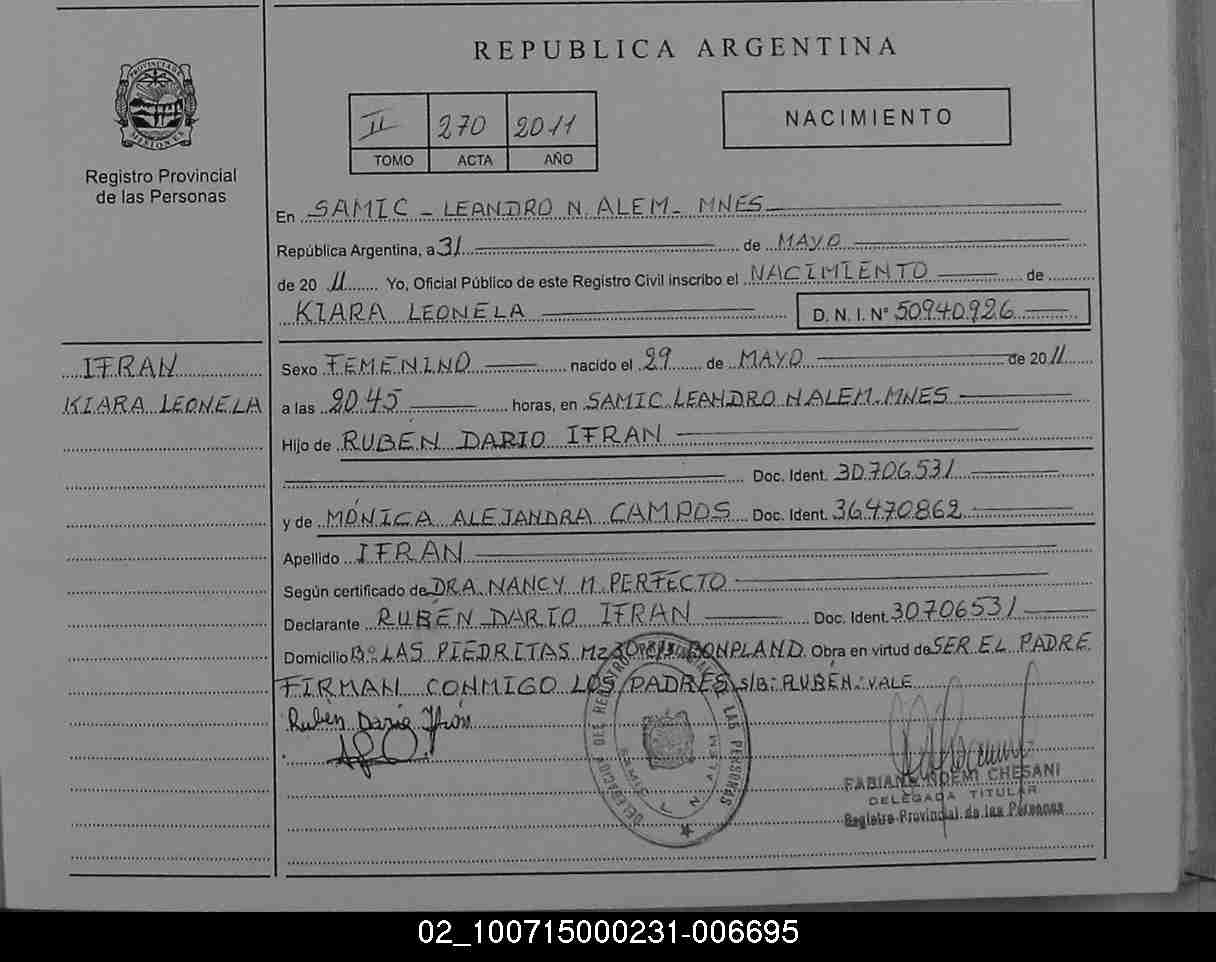 REPUBLICA ARGENTINA
PROVINCIA DE MISIONES
Registro Provincial
de las Personas
II 270 2011
TOMO ACTA AÑO
NACIMIENTO
En SAMIC - LEANDRO N. ALEM - MNES
República Argentina, a 31 de MAYO
de 20 11 Yo, Oficial Público de este Registro Civil inscribo el NACIMIENTO de
KIARA LEONELA D. N. I. N° 50940926
IFRAN
KIARA LEONELA
Sexo FEMENINO nacido el 29 de MAYO de 2011
a las 20.45 horas, en SAMIC.LEANDRO N ALEM.MNES
Hijo de RUBÉN DARIO IFRAN
Doc. Ident. 30706531
y de MÓNICA ALEJANDRA CAMPOS Doc. Ident. 36470862
Apellido IFRAN
Según certificado de DRA NANCY M. PERFECTO
Declarante RUBÉN DARIO IFRAN Doc. Ident. 30706531
Domicilio B° LAS PIEDRITAS Mz BONPLAND. Obra en virtud de SER EL PADRE.
FIRMAN CONMIGO LOS PADRES S/B: RUBÉN: VALE
Rubén Dario Ifrán
DELEGACION DEL REGISTRO PROVINCIAL LAS PERSONAS
SAMIC L. N. ALEM
FABIANA NOEMI CHESANI
DELEGADA TITULAR
Registro Provincial de las Personas
02_100715000231-006695